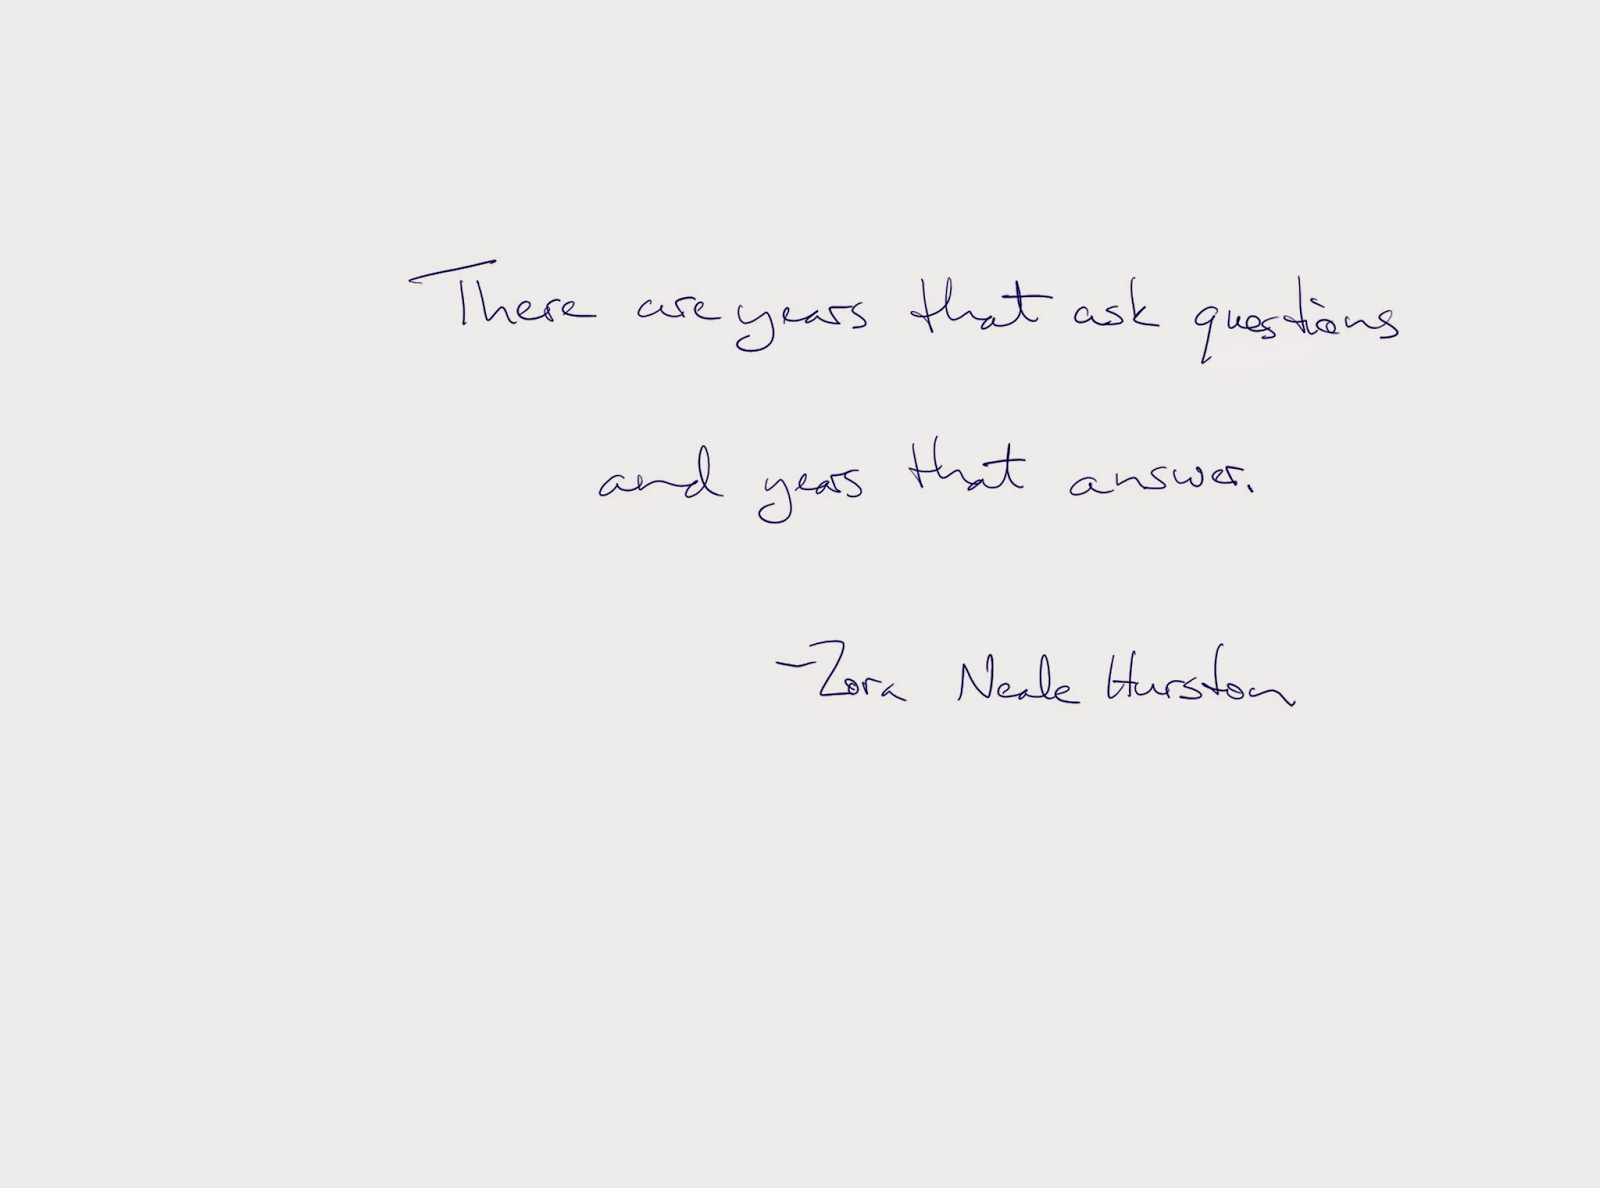 There are years that ask questions
and years that answer.
-Zora Neale Hurston